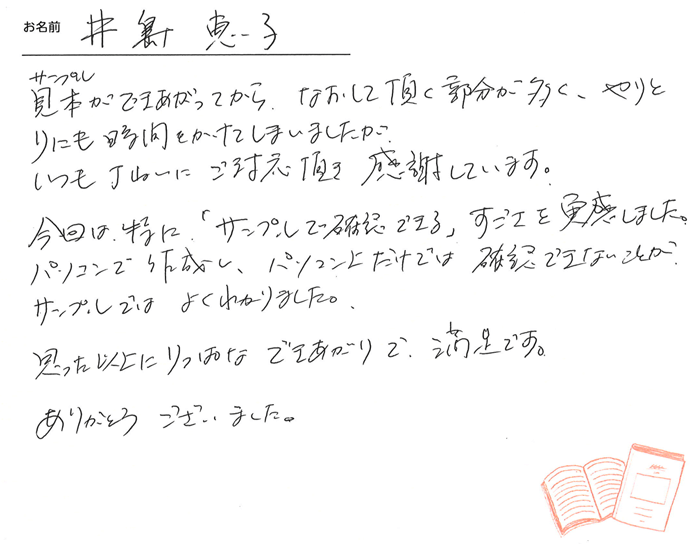 お名前 井島 恵子
サンプル
見本ができあがってから、なおして頂く部分が多く、やりと
りにも時間をかけてしまいましたが
いつも丁ねいにご対応頂き感謝しています。
今回は、特に、「サンプルで確認できる」すごさを実感しました。
パソコンで作成し、パソコン上だけでは確認できないことが
サンプルではよくわかりました。
思った以上にりっぱなできあがりで、満足です。
ありがとうございました。